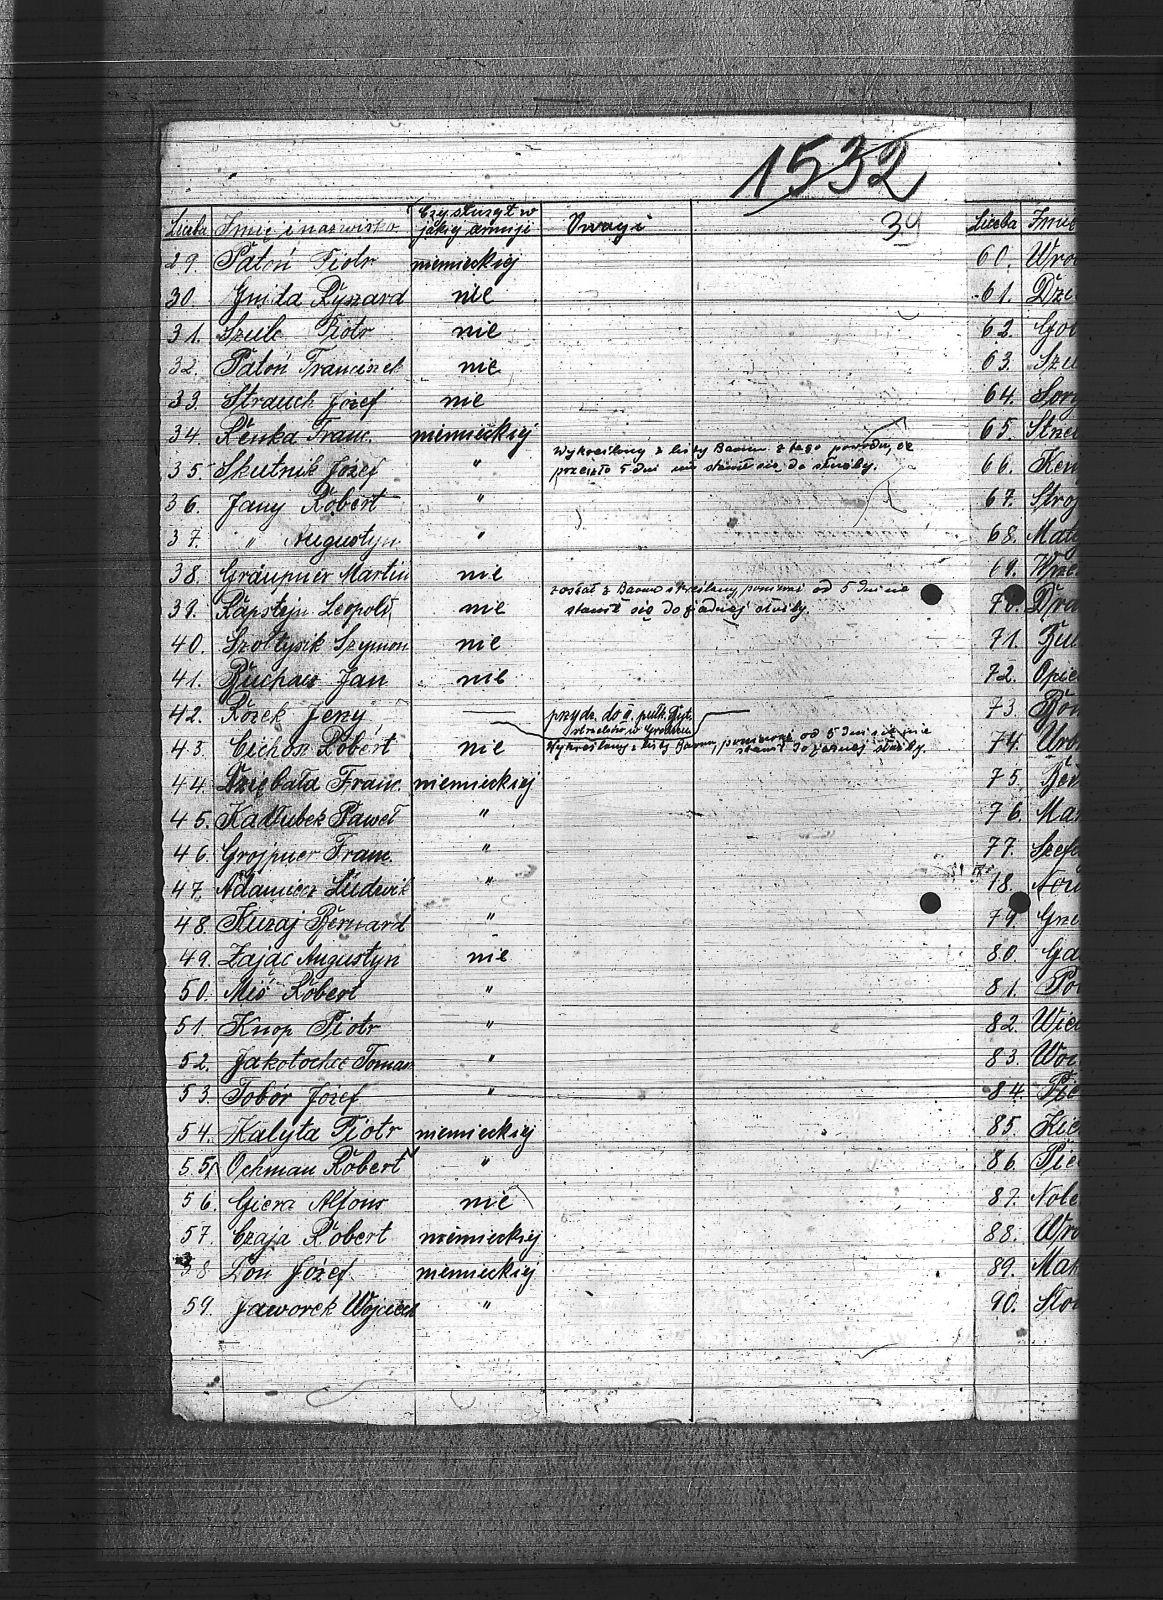 1532
34
Czy służył w
Liczba Imię i nazwisko jakiej armji Uwagi
29. Patoń Piotr niemieckiej
30 Gnida Ryszard nie
31. Szulc Piotr nie
32. Patoń Franciszek nie
33. Strauch Józef nie
34. Renka Franc. niemieckiej
Wykreślony z listy Baonu z tego powodu, że
35. Skutnik Józef "
przeszło 5 dni nie stawił się do służby.
36. Jany Robert "
37. " Augustyn "
38. Graupner Martin nie
został z Baonu skreślony, ponieważ od 5 dni nie
39. Kapstejn Leopold nie
stawił się do żadnej służby.
40. Szołtysik Szymon nie
41. Buchacz Jan nie
42. Rozek Jerzy — przydz. do II. pułk. Byt.
strzelców w
43. Cichon Robert nie Wykreślony z listy Baonu, ponieważ od 5 dni się nie
stawił do żadnej służby.
44. Dziębała Franc. niemieckiej
45. Kadłubek Paweł "
46. Grojpner Franc. "
47. Adamiec Ludwik "
48. Kuzaj Bernard "
49. Zając Augustyn nie
50. Miś Robert "
51. Knop Piotr "
52. Tomasz "
53. Tobór Józef "
54. Kalyta Piotr niemieckiej
55. Ochman Robert "
56. Giera Alfons nie
57. Czaja Robert niemieckiej
58 Loń Józef niemieckiej
59. Jaworek Wojciech "
Liczba Imię
60. Wro
61. Dze
62. Goł
63. Szu
64.
65. Strze
66. Ken
67. Stroj
68. Mate
69.
70. Dra
71. Kul
72. Opie
73.
74. Wro
75.
76. Mar
77. Szefe
78. Now
79. Grze
80. Ga
81. Po
82. Wie
83. Wo
84. Pie
85. Kie
86. Pie
87. Nole
88. Wro
89. Mak
90. Sło